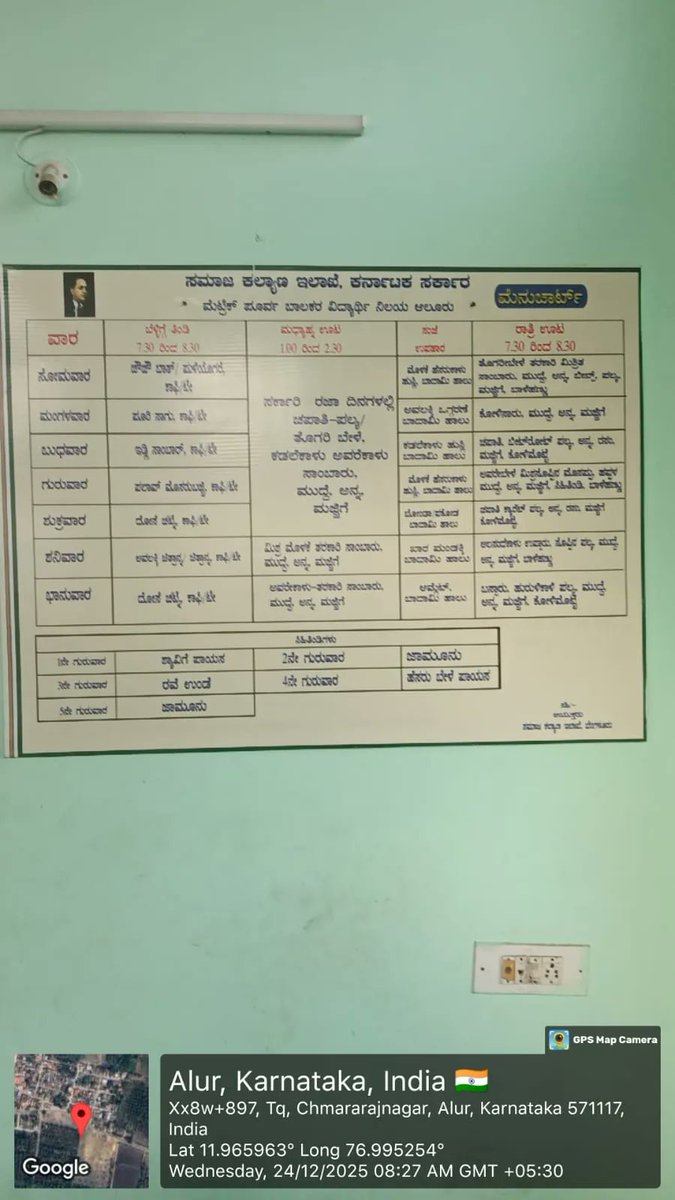 ಸಮಾಜ ಕಲ್ಯಾಣ ಇಲಾಖೆ, ಕರ್ನಾಟಕ ಸರ್ಕಾರ
ಮೆಟ್ರಿಕ್ ಪೂರ್ವ ಬಾಲಕರ ವಿದ್ಯಾರ್ಥಿ ನಿಲಯ ಆಲೂರು
ಮೆನುಚಾರ್ಟ್
ವಾರ
ಬೆಳ್ಳಿಗ್ಗೆ ತಿಂಡಿ
7.30 ರಿಂದ 8.30
ಮಧ್ಯಾಹ್ನ ಊಟ
1.00 ರಿಂದ 2.30
ಸಂಜೆ
ಉಪಹಾರ
ರಾತ್ರಿ ಊಟ
7.30 ರಿಂದ 8.30
ಸೋಮವಾರ
ಚೌಚೌ ಬಾತ್/ ಪುಳಿಯೊಗರೆ,
ಕಾಫಿ/ಟೀ
ಸರ್ಕಾರಿ ರಜಾ ದಿನಗಳಲ್ಲಿ
ಚಪಾತಿ-ಪಲ್ಯ/
ತೊಗರಿ ಬೇಳೆ,
ಕಡಲೆಕಾಳು ಅವರೆಕಾಳು
ಸಾಂಬಾರು,
ಮುದ್ದೆ, ಅನ್ನ,
ಮಜ್ಜಿಗೆ
ಮೊಳಕೆ ಹೆಸರುಕಾಳು
ಹುಸ್ಲಿ, ಬಾದಾಮಿ ಹಾಲು
ತೊಗರಿಬೇಳೆ ತರಕಾರಿ ಮಿಶ್ರಿತ
ಸಾಂಬಾರು, ಮುದ್ದೆ, ಅನ್ನ, ಬೀಟ್ರೂಟ್, ಪಲ್ಯ,
ಮಜ್ಜಿಗೆ, ಬಾಳೆಹಣ್ಣು
ಮಂಗಳವಾರ
ಪೂರಿ ಸಾಗು, ಕಾಫಿ/ಟೀ
ಅವಲಕ್ಕಿ ಒಗ್ಗರಣೆ
ಬಾದಾಮಿ ಹಾಲು
ಕೋಳಿಸಾರು, ಮುದ್ದೆ, ಅನ್ನ, ಮಜ್ಜಿಗೆ
ಬುಧವಾರ
ಇಡ್ಲಿ ಸಾಂಬಾರ್, ಕಾಫಿ/ಟೀ
ಕಡಲೆಕಾಳು ಹುಸ್ಲಿ
ಬಾದಾಮಿ ಹಾಲು
ಚಪಾತಿ, ಬೀಟ್‌ರೋಟ್ ಪಲ್ಯ, ಅನ್ನ, ರಸಂ,
ಮಜ್ಜಿಗೆ, ಕೋಳಿಮೊಟ್ಟೆ
ಗುರುವಾರ
ಪಲಾವ್ ಮೊಸರುಬಜ್ಜಿ, ಕಾಫಿ/ಟೀ
ಮೊಳಕೆ ಹೆಸರುಕಾಳು
ಹುಸ್ಲಿ, ಬಾದಾಮಿ ಹಾಲು
ಅವರೇಬೇಳೆ ಮಿಶ್ರಸೊಪ್ಪಿನ ಮೊಸಪ್ಪು, ಹಪ್ಪಳ
ಮುದ್ದೆ, ಅನ್ನ, ಮಜ್ಜಿಗೆ, ಸಿಹಿತಿಂಡಿ, ಬಾಳೆಹಣ್ಣು
ಶುಕ್ರವಾರ
ದೋಸೆ ಚಟ್ನಿ, ಕಾಫಿ/ಟೀ
ಬೋಂಡಾ ಪಕೋಡ
ಬಾದಾಮಿ ಹಾಲು
ಚಪಾತಿ ಕ್ಯಾರೆಟ್ ಪಲ್ಯ, ಅನ್ನ, ರಸಂ, ಮಜ್ಜಿಗೆ
ಕೋಳಿಮೊಟ್ಟೆ
ಶನಿವಾರ
ಅವಲಕ್ಕಿ ಚಿತ್ರಾನ್ನ/ ಚಿತ್ರಾನ್ನ, ಕಾಫಿ/ಟೀ
ಮಿಶ್ರ ಮೊಳಕೆ ತರಕಾರಿ ಸಾಂಬಾರು,
ಮುದ್ದೆ, ಅನ್ನ, ಮಜ್ಜಿಗೆ
ಖಾರ ಮಂಡಕ್ಕಿ
ಬಾದಾಮಿ ಹಾಲು
ಅಲಸಂದೆಕಾಳು ಉಪ್ಸಾರು, ಸೊಪ್ಪಿನ ಪಲ್ಯ, ಮುದ್ದೆ,
ಅನ್ನ, ಮಜ್ಜಿಗೆ, ಬಾಳೆಹಣ್ಣು
ಭಾನುವಾರ
ದೋಸೆ ಚಟ್ನಿ, ಕಾಫಿ/ಟೀ
ಅವರೇಕಾಳು-ತರಕಾರಿ ಸಾಂಬಾರು,
ಮುದ್ದೆ, ಅನ್ನ, ಮಜ್ಜಿಗೆ
ಆಮ್ಲೆಟ್,
ಬಾದಾಮಿ ಹಾಲು
ಬಸ್ಸಾರು, ಹುರುಳಿಕಾಳಿ ಪಲ್ಯ, ಮುದ್ದೆ,
ಅನ್ನ, ಮಜ್ಜಿಗೆ, ಕೋಳಿಮೊಟ್ಟೆ
ಸಿಹಿತಿಂಡಿಗಳು
1ನೇ ಗುರುವಾರ ಶ್ಯಾವಿಗೆ ಪಾಯಸ 2ನೇ ಗುರುವಾರ ಜಾಮೂನು
3ನೇ ಗುರುವಾರ ರವೆ ಉಂಡೆ 4ನೇ ಗುರುವಾರ ಹೆಸರು ಬೇಳೆ ಪಾಯಸ
5ನೇ ಗುರುವಾರ ಜಾಮೂನು
ಸಹಿ/-
ಆಯುಕ್ತರು
ಸಮಾಜ ಕಲ್ಯಾಣ ಇಲಾಖೆ, ಬೆಂಗಳೂರು
GPS Map Camera
Google
Alur, Karnataka, India
Xx8w+897, Tq, Chmararajnagar, Alur, Karnataka 571117,
India
Lat 11.965963° Long 76.995254°
Wednesday, 24/12/2025 08:27 AM GMT +05:30